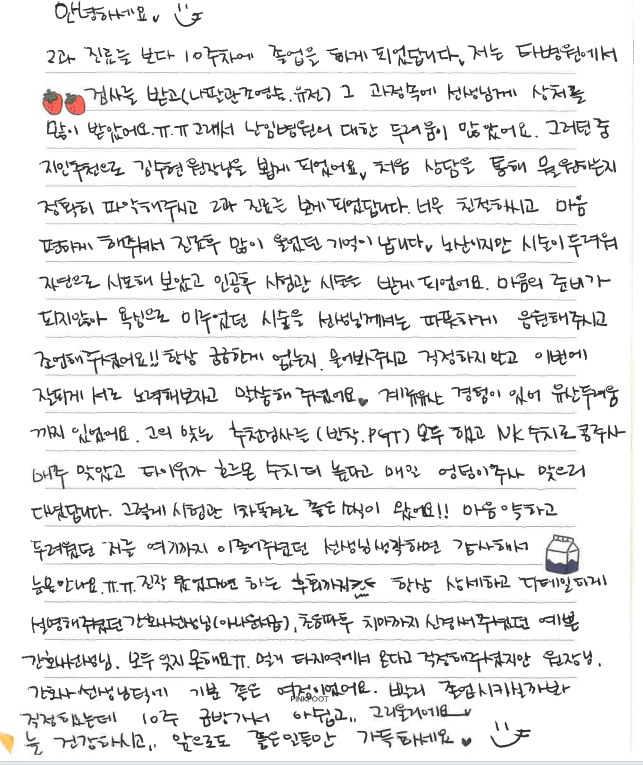 안녕하세요.
2과 진료를 보다 10주차에 졸업을 하게 되었답니다. 저는 타병원에서
검사를 받고(나팔관조영술.유전) 그 과정속에 선생님께 상처를
많이 받았어요.ㅠ.ㅠ그래서 난임병원의 대한 두려움이 많았어요. 그러던 중
지인추천으로 김수현 원장님을 뵙게 되었어요. 처음 상담을 통해 뭘 원하는지
정확히 파악해주시고 2과 진료를 보게 되었답니다. 너무 친절하시고 마음
편하게 해주셔서 진료후 많이 울었던 기억이 납니다. 노산이지만 시술이 두려워
자연으로 시도해 보았고 인공후 시험관 시술을 받게 되었어요. 마음의 준비가
되지않아 욕심으로 미루었던 시술을 선생님께서는 따뜻하게 응원해주시고
조언해주셨어요!! 항상 궁금한게 없는지. 물어봐주시고 걱정하지 말고 이번에
잘되게 서로 노력해보자고 말씀해 주셨어요♥ 계류유산 경험이 있어 유산두려움
까지 있었어요. 그에 맞는 추천검사는 (반착.PGT) 모두 했고 NK수치로 콩주사
매주 맞았고 타이유가 호르몬 수치 더 높다고 매일 엉덩이주사 맞으러
다녔답니다. 그렇게 시험관 1차동결로 좋은소식이 왔어요!! 마음 약하고
두려웠던 저를 여기까지 이끌어주셨던 선생님생각하면 감사해서
눈물만나요.ㅠ.ㅠ. 진작 왔었다면 하는 후회까지 항상 상세하고 디테일하게
설명해주셨던 간호사선생님 초음파후 치마까지 신경써주셨던 예쁜
간호사선생님. 모두 잊지 못해요ㅠ. 멀리 타지역에서 온다고 걱정해주셨지만 원장님,
간호사 선생님덕에 기분 좋은 여정이었어요. 빨리 졸업시키실까봐
PINKFOOT
걱정했는데 10주 금방가서 아쉽고.. 그리울거에요
늘 건강하시고,, 앞으로도 좋은일들만 가득하세요♥